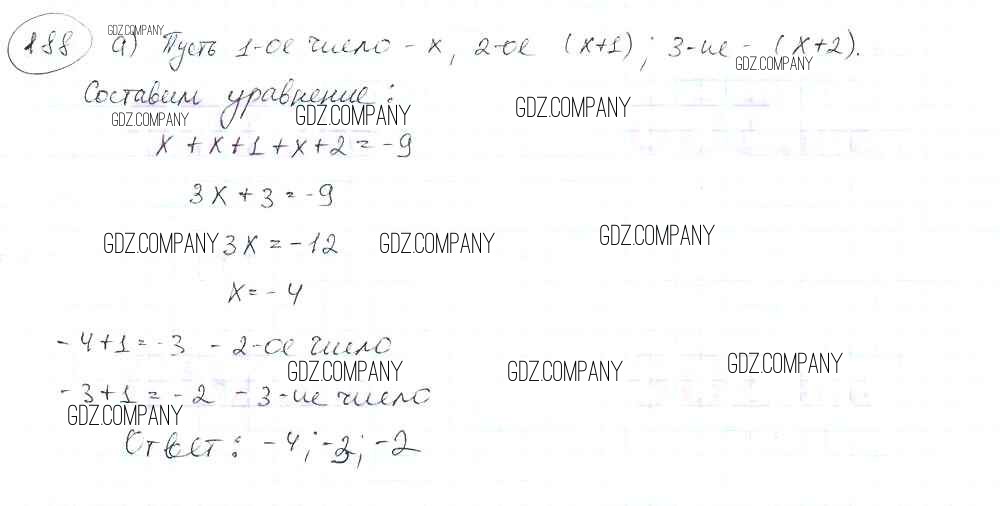 188 а) Пусть 1-ое число - x, 2-ое (x+1); 3-ие - (x+2).
GDZ.COMPANY
GDZ.COMPANY
Составим уравнение:
GDZ.COMPANY GDZ.COMPANY GDZ.COMPANY
x + x + 1 + x + 2 = -9
3x + 3 = -9
GDZ.COMPANY 3x = -12 GDZ.COMPANY GDZ.COMPANY
x = -4
-4+1 = -3 - 2-ое число
GDZ.COMPANY GDZ.COMPANY GDZ.COMPANY
-3+1 = -2 - 3-ие число
GDZ.COMPANY
Ответ: -4; -3; -2